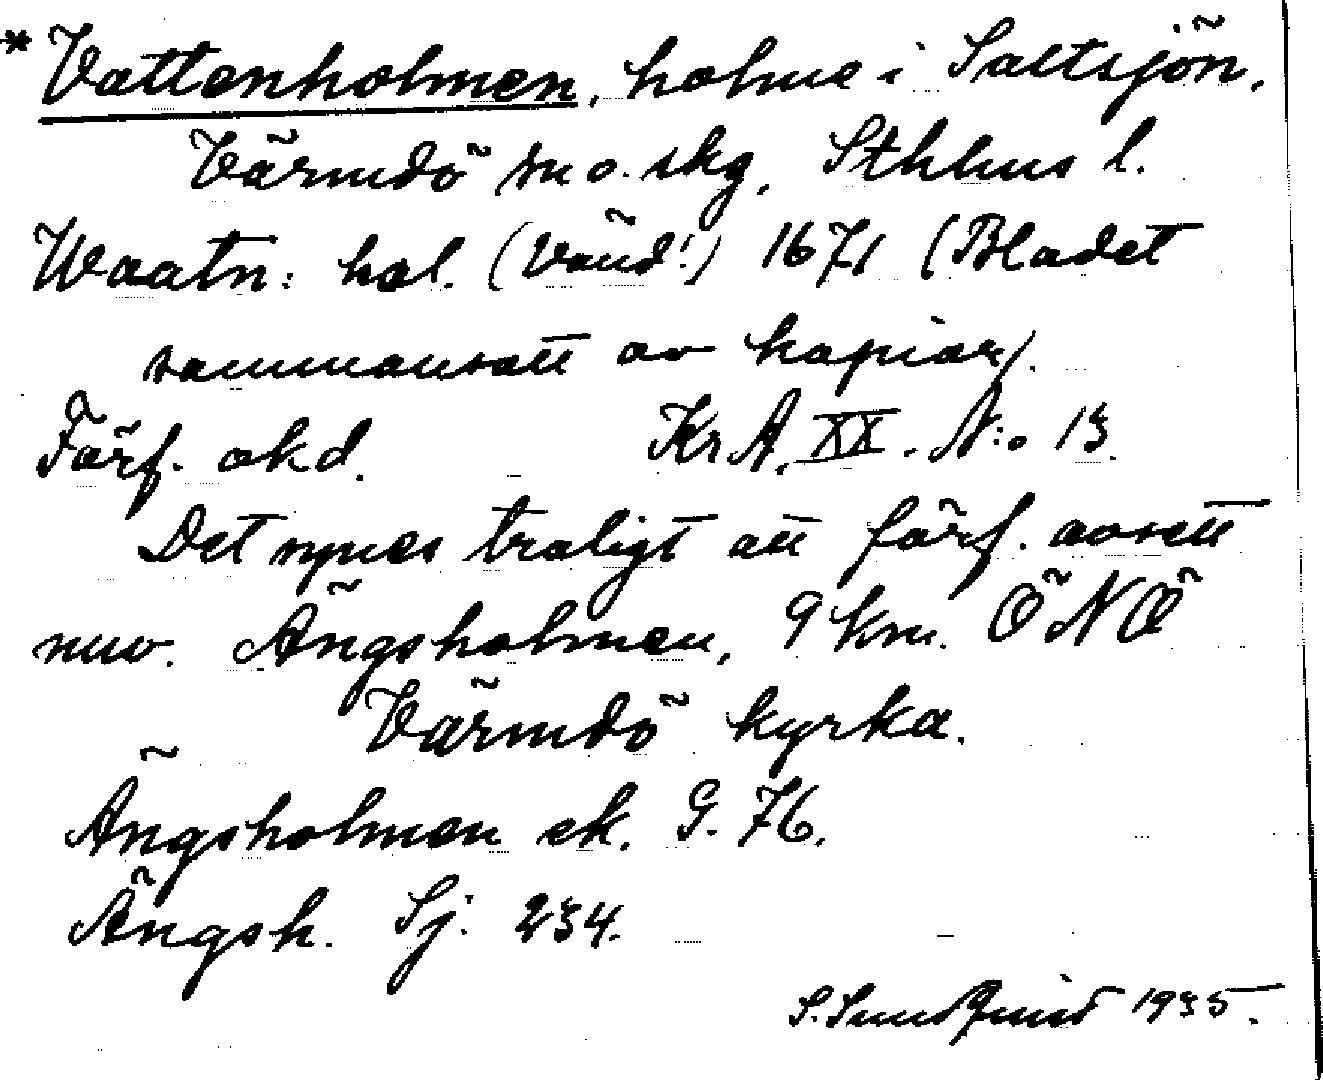 * Vattenholmen, holme i Saltsjön,
Värmdö sn o. skg, Sthlms l.
Waatn: hol. (Vänd!) 1671 (Bladet
sammansatt av kopior).
Förf. okd. Kr A. XX. N:o 13.
Det synes troligt att förf. avsett
nuv. Ängsholmen, 9 km. ÖNÖ
Värmdö kyrka.
Ängsholmen ek. G. 76.
Ängsh. Sj. 234.
S. Sundquist 1935.